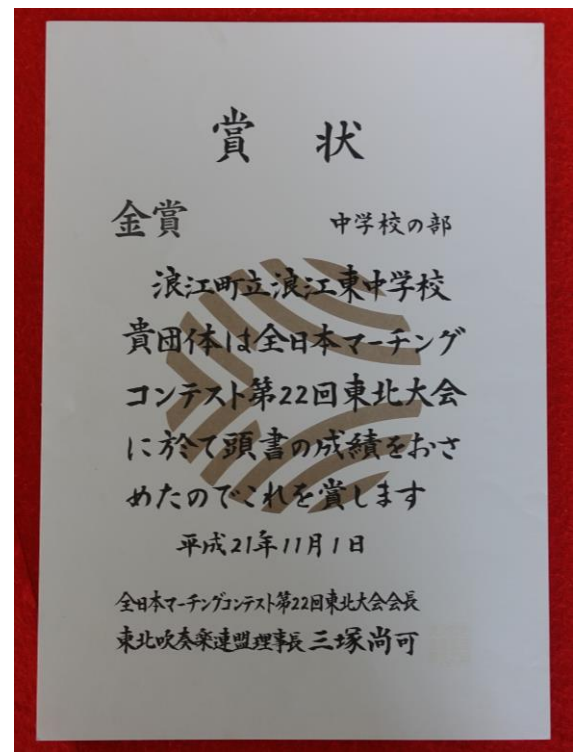 賞 状
金賞 中学校の部
浪江町立浪江東中学校
貴団体は全日本マーチング
コンテスト第22回東北大会
に於て頭書の成績をおさ
めたのでこれを賞します
平成21年11月1日
全日本マーチングコンテスト第22回東北大会会長
東北吹奏楽連盟理事長 三塚尚可